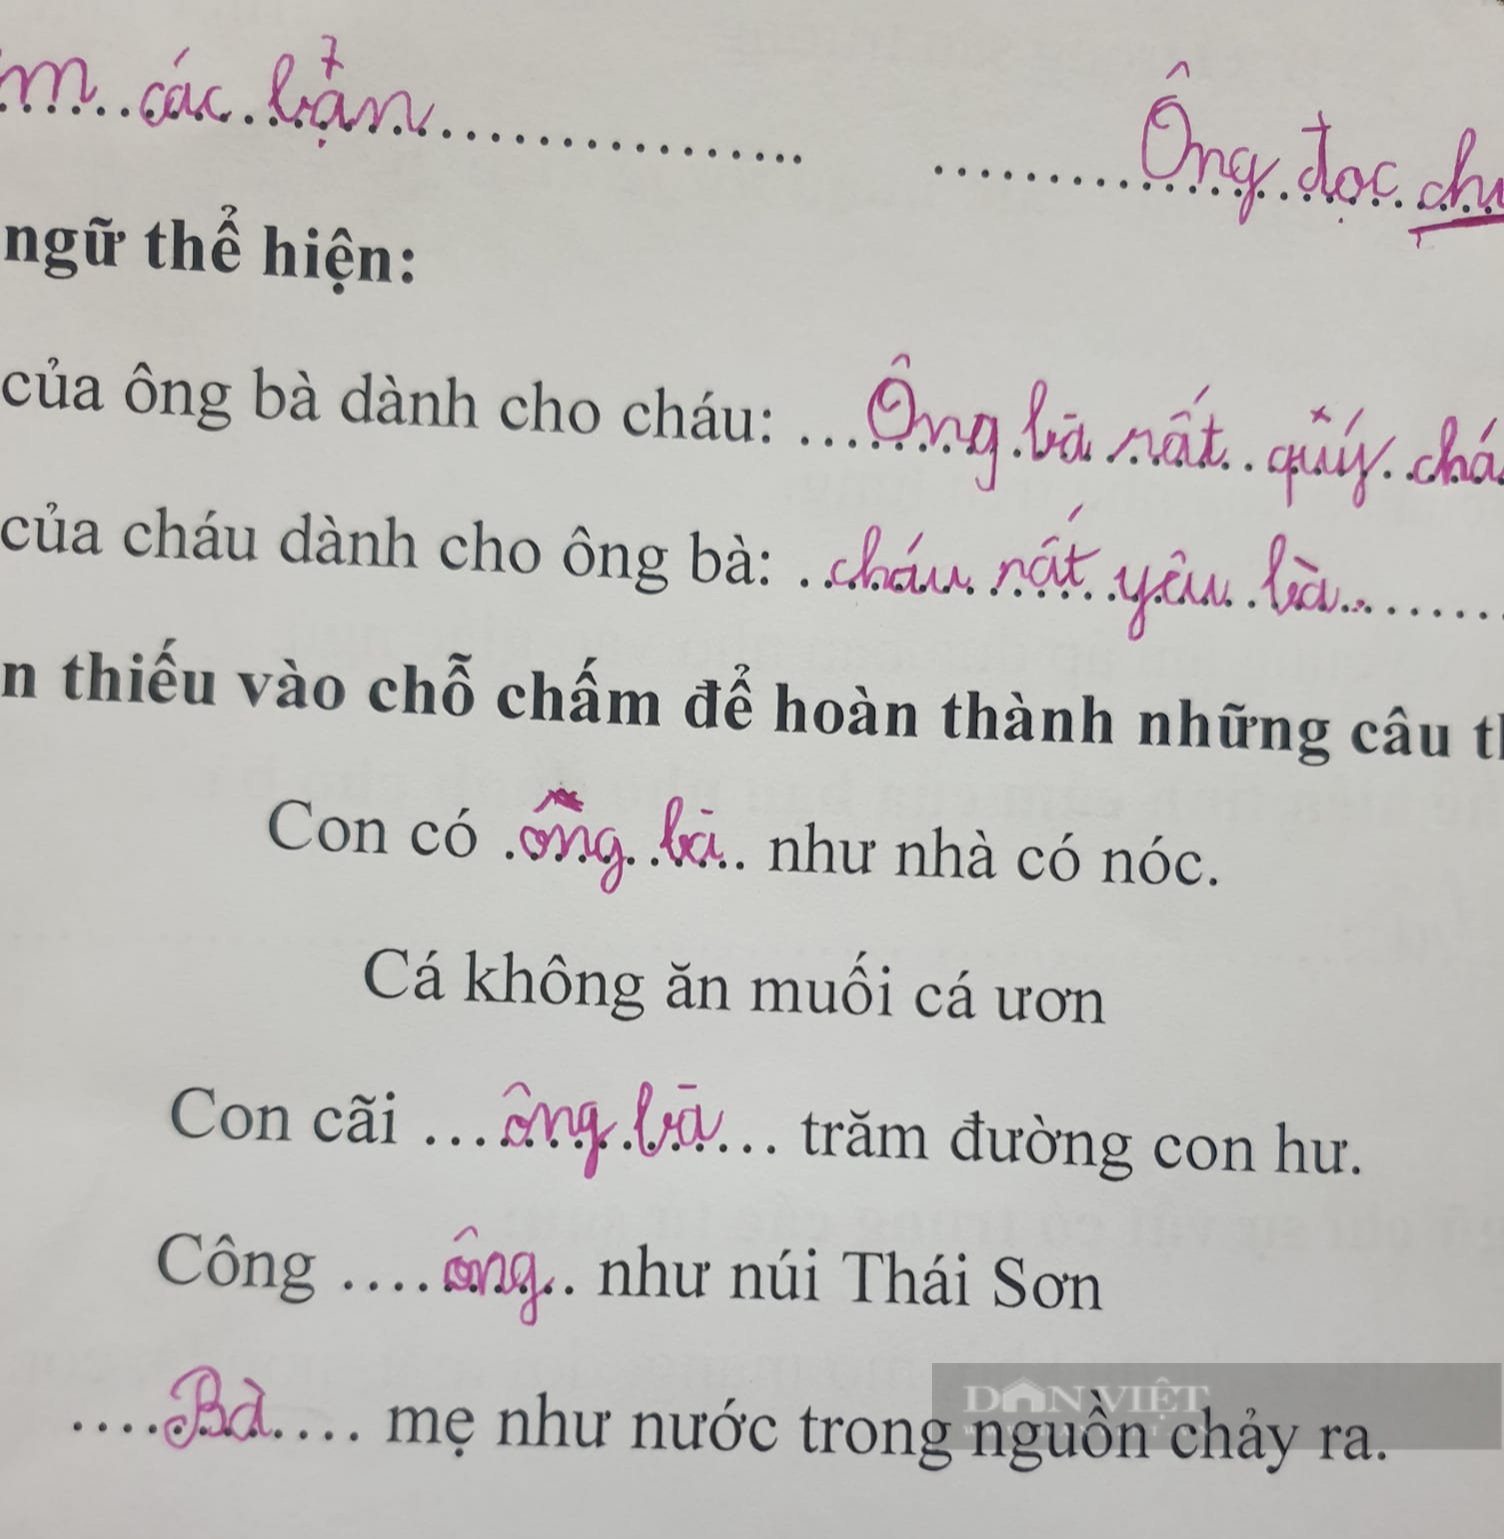 m...các.bạn...........................
..........Ông.đọc.chu
ngữ thể hiện:
của ông bà dành cho cháu: ...Ông.bà rất..quý.chá
của cháu dành cho ông bà: ..cháu rất yêu.bà...........
n thiếu vào chỗ chấm để hoàn thành những câu th
Con có .ông..bà.. như nhà có nóc.
Cá không ăn muối cá ươn
Con cãi ...ông.bà... trăm đường con hư.
Công ....ông.. như núi Thái Sơn
....Bà.... mẹ như nước trong nguồn chảy ra.
DÂN VIỆT